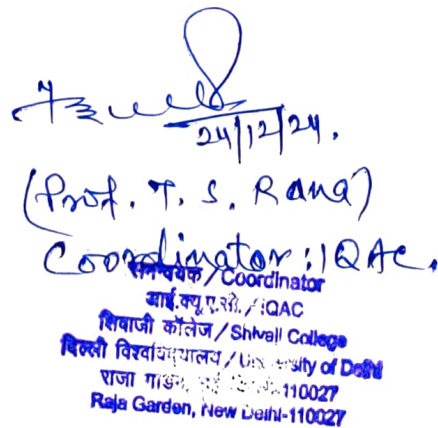 24/12/24.
(Prof. T. S. Rana)
Coordinator : IQAC.
समन्वयक / Coordinator
आई.क्यू.ए.सी. / IQAC
शिवाजी कॉलेज / Shivaji College
दिल्ली विश्वविद्यालय / University of Delhi
राजा गार्डन, 110027
Raja Garden, New Delhi-110027